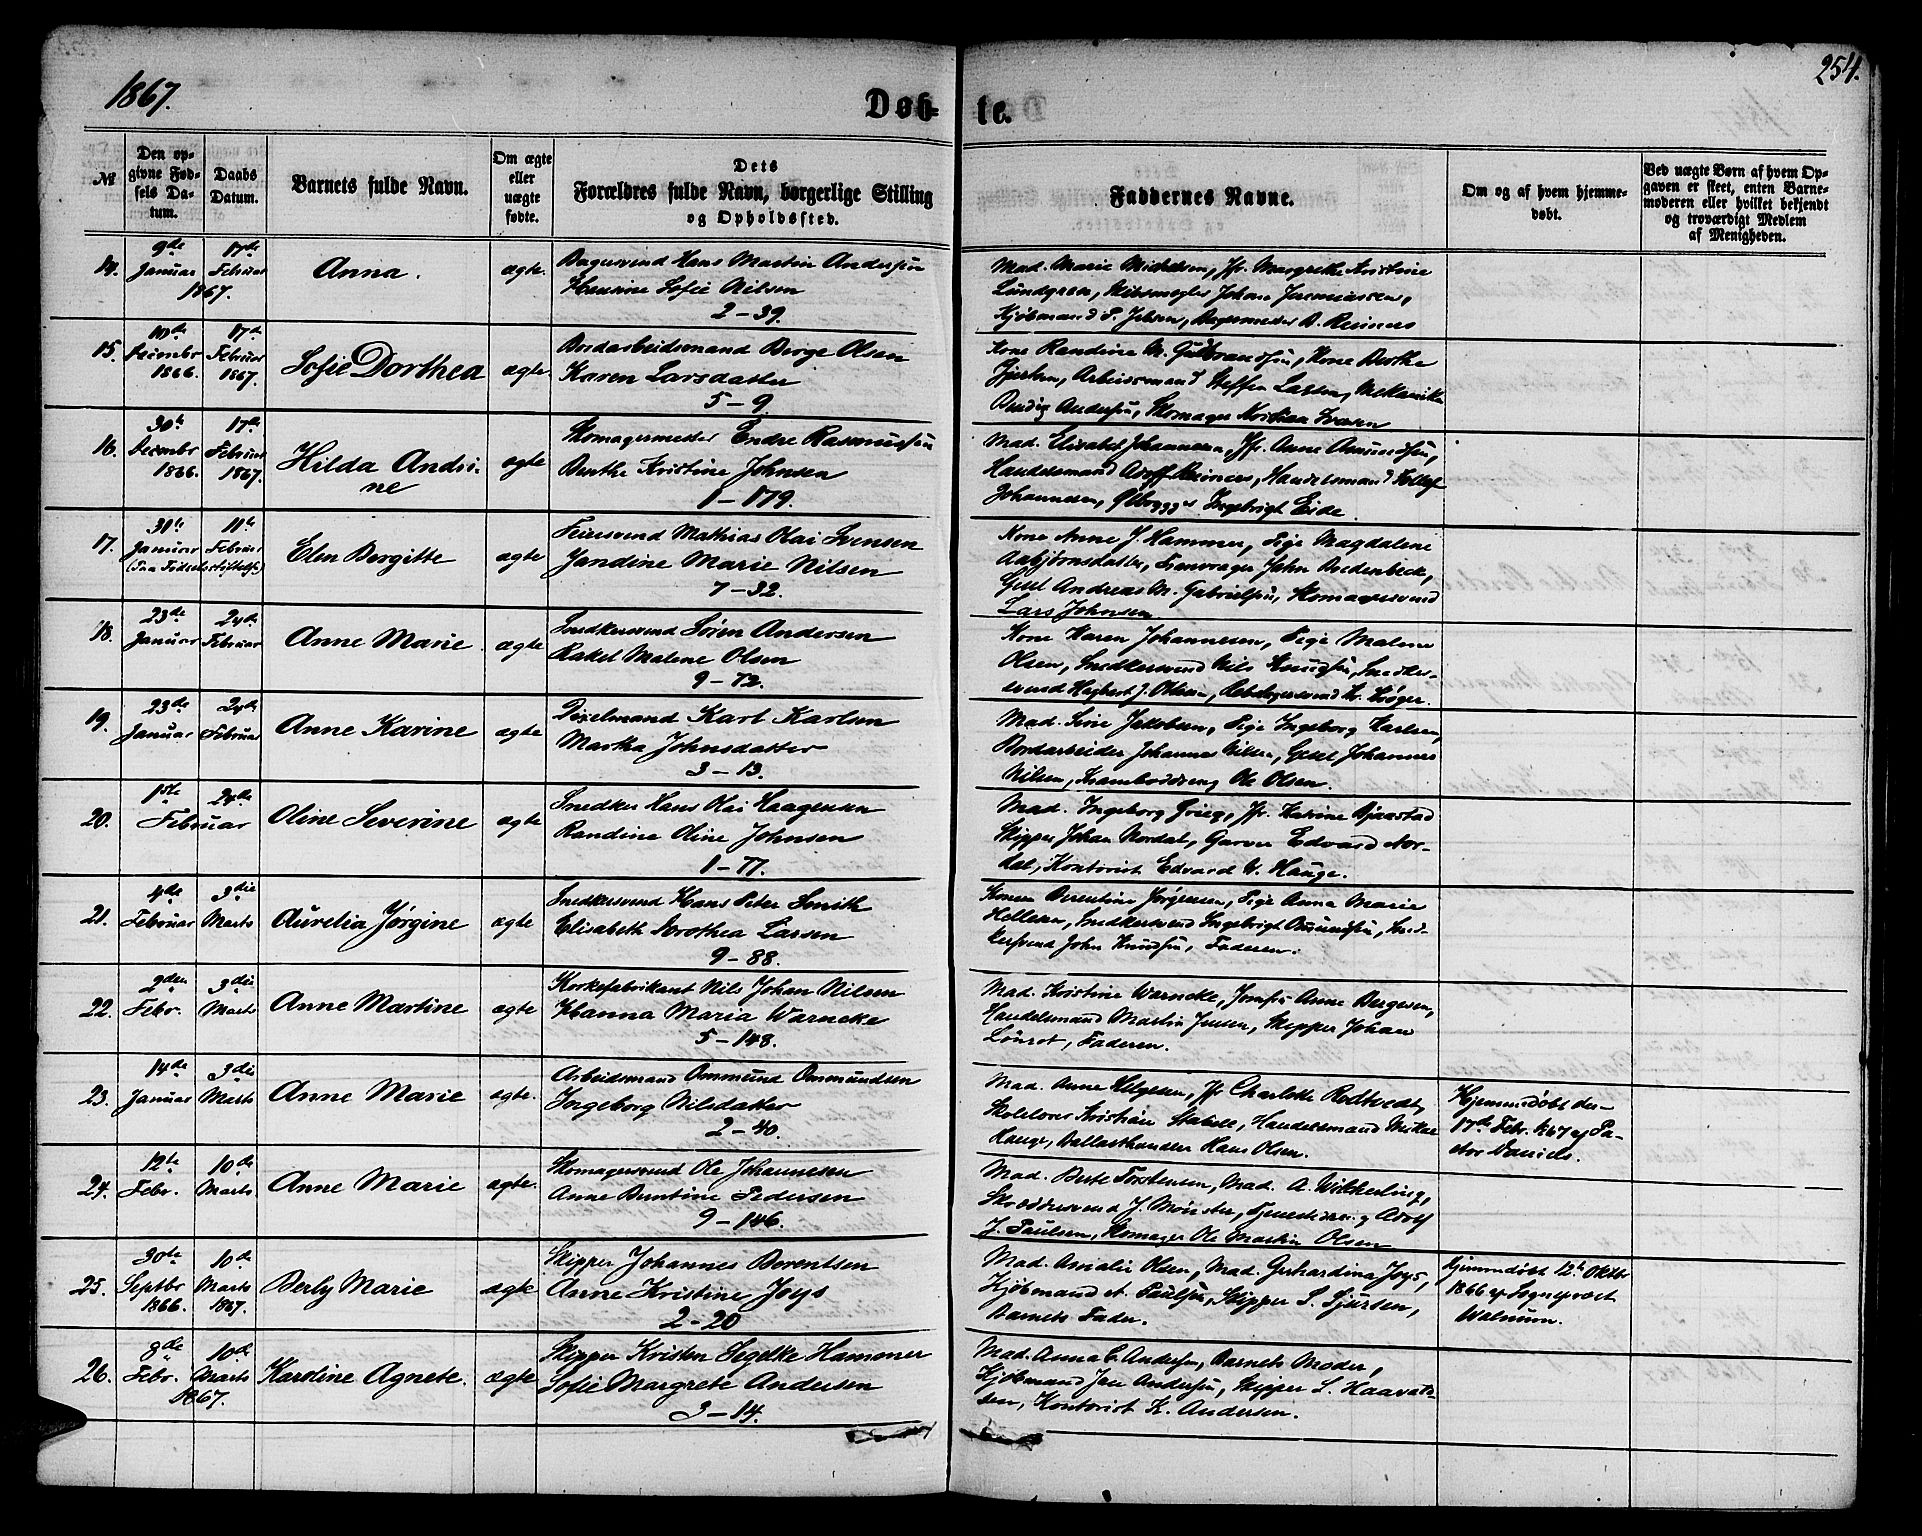 1867.
254.
Døb-
te.
№
Den op-
givne Fød-
sels Da-
tum.
Daabs
Datum.
Barnets fulde Navn.
Om ægte
eller
uægte
fødte.
Dets
Forældres fulde Navn, borgerlige Stilling
og Opholdssted.
Faddernes Navne.
Om og af hvem hjemme-
døbt.
Ved uægte Børn af hvem Op-
gaven er skeet, enten Barne-
moderen eller hvilket bekjendt
og troværdigt Medlem
af Menigheden.
14.
9de
Januar
17de
Februar
1867.
Anna.
ægte.
Bagersvend Hans Martin Andersen
Henrine Sofie Nilsen
2-39.
Mad. Marie Michelsen, Jfr. Margrethe Kristine
Lundgren, Skibsmægler Johan Jeremiassen,
Kjøbmand P. Jebsen, Bagermester B. Reimers
15.
10de
Decembr
1866.
17de
Februar
1867.
Sofie Dorthea
ægte.
Bordarbeidsmand Børge Olsen
Karen Larsdatter
5-9.
Kone Randine M. Gulbrandsen, Kone Berthe
Arbeidsmand Steffen Larsen, Mekaniker
Andersen, Skomager Kristian Ivarsen
16.
30te
Decembr
1866.
17de
Februar
1867.
Hilda Andri-
ne
ægte
Skomagermester Endre Rasmussen
Berthe Kristine Johnsen
1-179.
Mad. Elisabet Johannesen, Jfr. Anne Amundsen,
Handelsmand Adolf Reimers, Handelsmand
Johannesen, Ølbrygger Ingebrigt Eide.
17.
31te
Januar
(Fra Fødselsstiftelsen)
11te
Februar
Elen Bergitte
ægte
Feiersvend Mathias Olai Svensen
Jandine Marie Nilsen
7-32.
Kone Anne J. Hammer, Pige Magdalene
Aabjørnsdatter, John Bredenbeck,
Gesel Andreas M. Gabrielsen, Skomagersvend
Lars Johnsen
18.
23de
Januar
24de
Februar
Anne Marie
ægte
Snedkersvend Søren Andersen
Rakel Malene Olsen
9-72.
Kone Karen Johannesen, Pige Malene
Olsen, Snedkersvend Nils Knudsen, Snedker-
svend Hagbert J. Olsen, Rebslagersvend Kr. Krøger.
19.
23de
Januar
24de
Februar
Anne Karine
ægte
Dixelmand Karl Karlsen
Martha Johnsdatter
3-13.
Mad. Sivie Jakobsen, Pige Ingeborg Karlsen,
Bordarbeider Johannes Nilsen, Gesel Johannes
Nilsen, Krambodsreng Ole Olsen.
20.
1ste
24de
Februar
Oline Severine
ægte
Snedker Hans Olai Haagensen
Randine Oline Johnsen
1-77.
Mad. Ingeborg Grieg, Jfr. Katrine Bjaastad
Skipper Johan Nordal, Garver Edvard Nor-
dal, Kontorist Edvard W. Hauge.
21.
4de
Februar
3die
Marts
Aurelia Jørgine
ægte
Snedkersvend Hans Peter Smith
Elisabeth Dorothea Larsen
9-88.
Konen Berentine Jørgensen, Pige Anna Marie
Hellesen, Snedkersvend Ingebrigt Omundsen, Sned-
kersvend John Knudsen, Faderen.
22.
2den
Febr.
3die
Marts
Anne Martine
ægte
Korkefabrikant Nils Johan Nilsen
Hanna Maria Warncke
5-148.
Mad. Kristine Warncke, Jomfru Anne Bergesen,
Handelsmand Martin Jensen, Skipper Johan
Lönrot, Faderen.
23.
14de
Januar
3die
Marts
Anne Marie
ægte.
Arbeidsmand Ommund Ommundsen
Ingeborg Nilsdatter
2-40.
Mad. Anne Helgesen, Jfr Charlotte Rodtvedt,
Skolelærer Kristian Stabell, Handelsmand Mikael
Hauge, Ballasthandler Hans Olsen.
Hjemmedøbt den
17de Febr. 1867 af Pa-
stor Daniels.
24.
12te
Febr.
10de
Marts
Anne Marie
ægte.
Skomagersvend Ole Johannesen
Anne Buntine Pedersen
9-146.
Mad. Berte Torstensen, Mad. A. Wilkherling,
Skræddersvend J. Mønster, Adolf
J. Paulsen, Skomager Ole Martin Olsen
25.
30te
Septbr
1866.
10de
Marts
1867.
Berly Marie
ægte
Skipper Johannes Berentsen
Anne Kristine Joys
2-20
Mad. Amalie Olsen, Mad. Gerhardina Joys,
Kjøbmand A. Paulsen, Skipper S. Sjursen,
Barnets Fader.
Hjemmedøbt 12te Oktbr
1866 af Sogneprest
Walnum.
26.
8de
Febr.
10de
Marts
1867.
Karoline Agnete.
ægte
Skipper Kristen Segelke Hammer
Sofie Margrete Andersen
3-14.
Mad. Anna C. Andersen, Barnets Moder,
Kjøbmand Jan Andersen, Skipper L. Haavald-
sen, Kontorist K. Andersen.